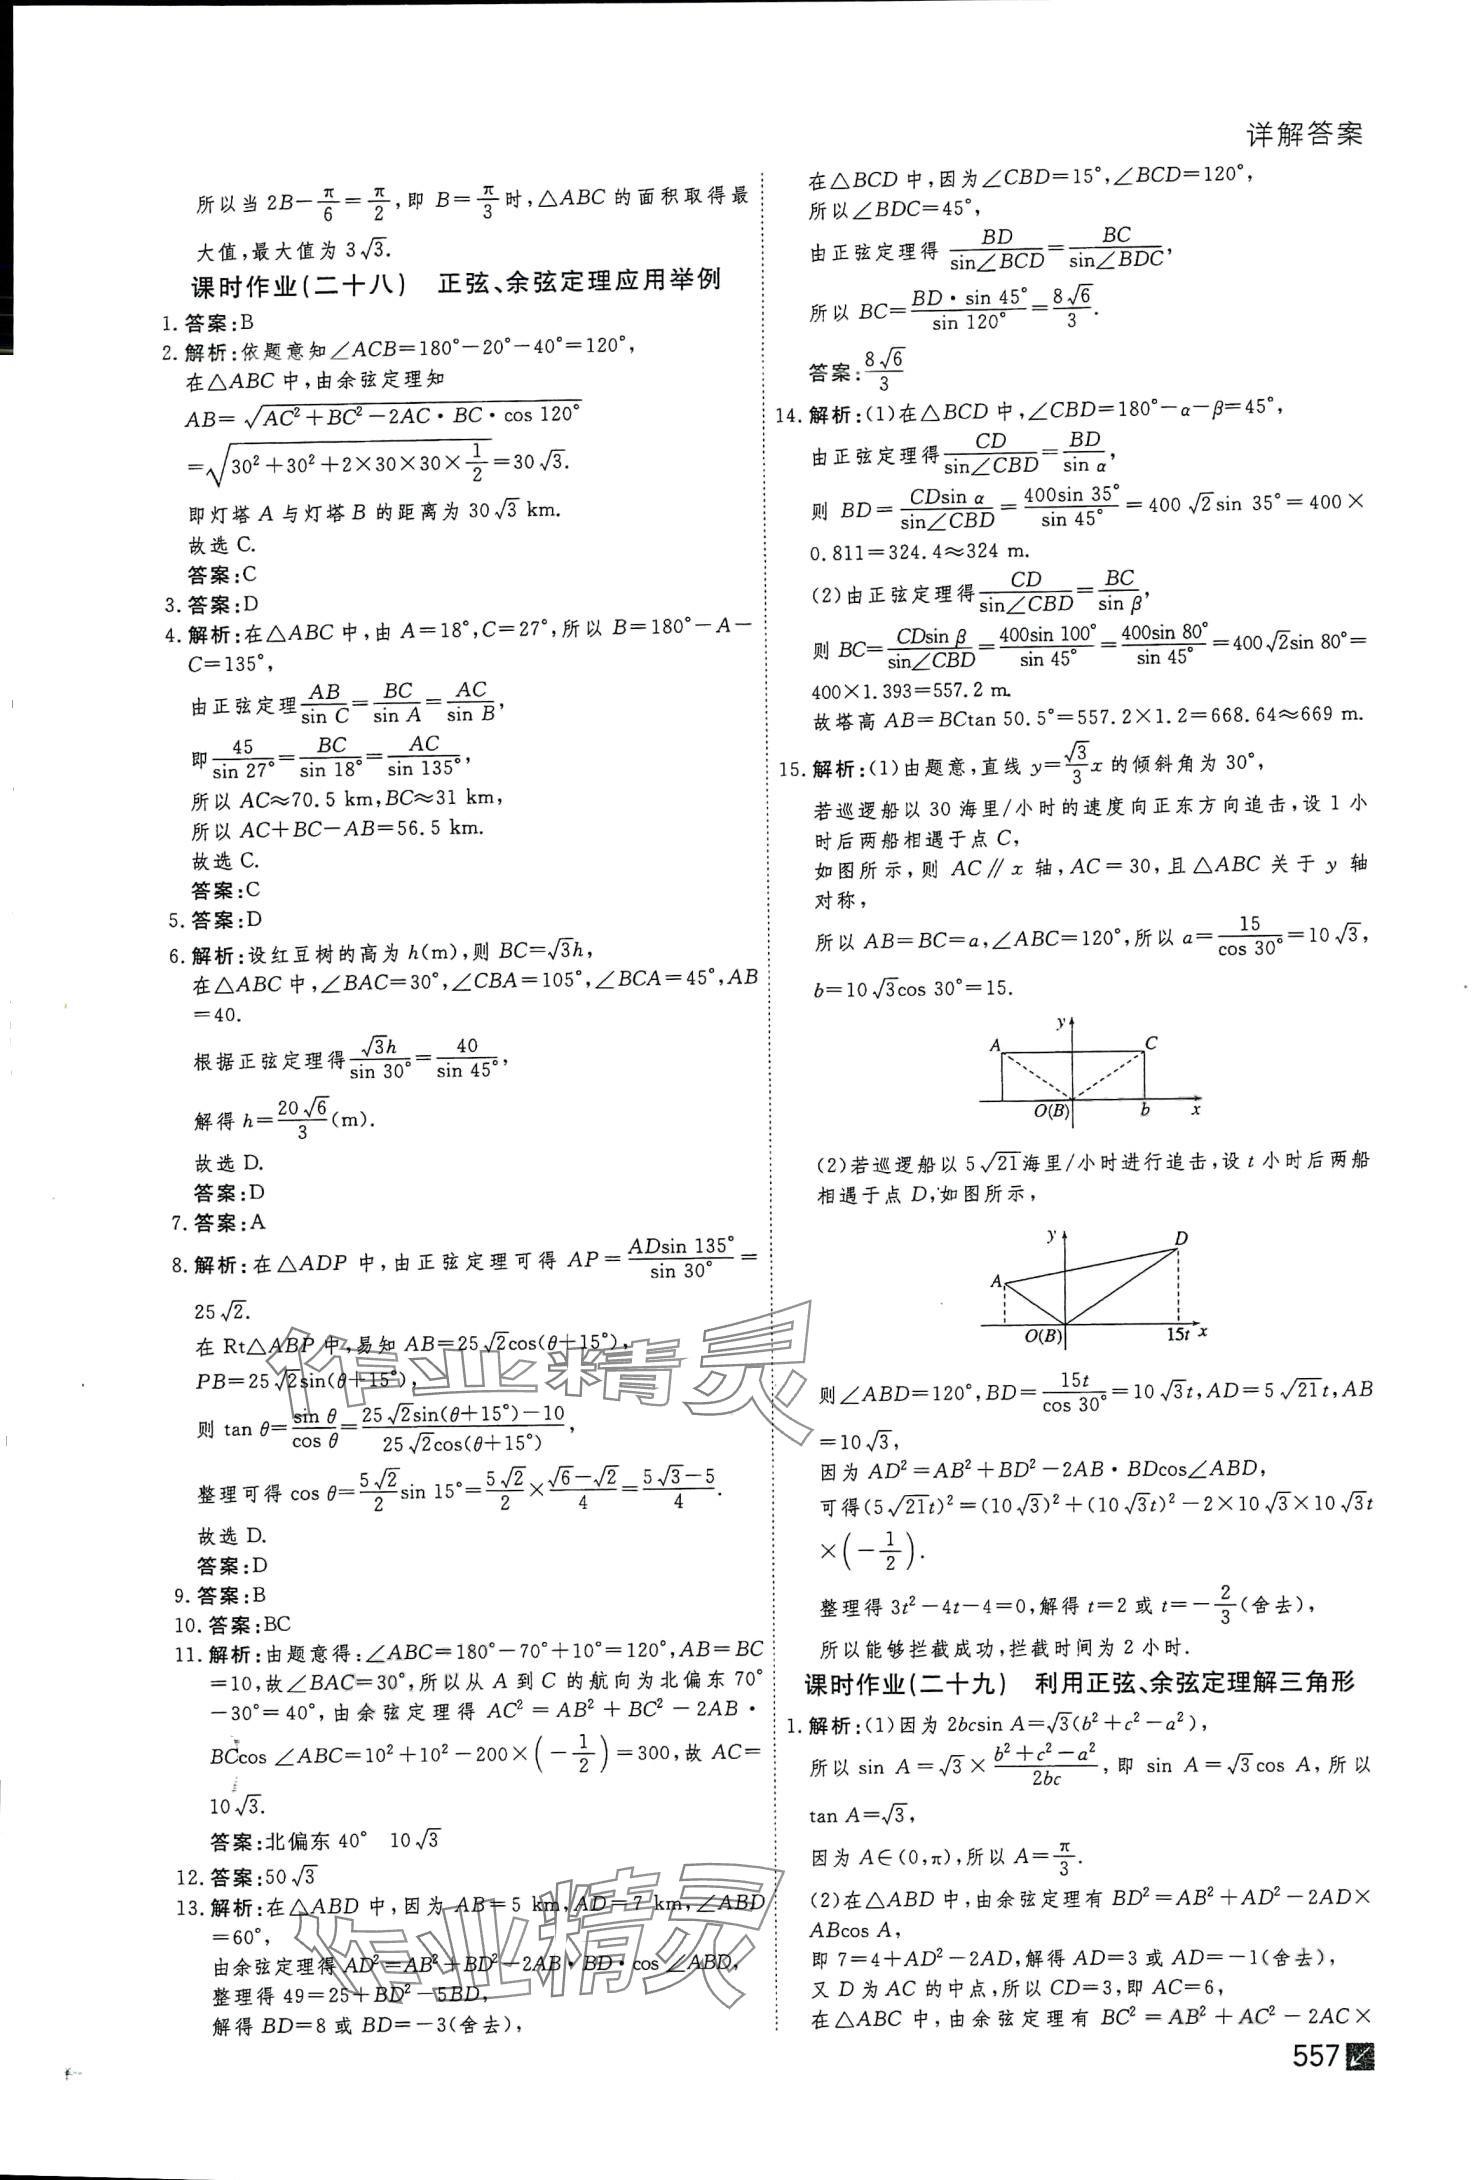 详解答案
所以当 2B-π/6=π/2,即 B=π/3 时,△ABC 的面积取得最
大值,最大值为 3√3.
课时作业(二十八) 正弦、余弦定理应用举例
1. 答案:B
2. 解析:依题意知∠ACB=180°-20°-40°=120°,
在△ABC 中,由余弦定理知
AB=√(AC²+BC²-2AC·BC·cos 120°)
=√(30²+30²+2×30×30×1/2)=30√3.
即灯塔 A 与灯塔 B 的距离为 30√3 km.
故选 C.
答案:C
3. 答案:D
4. 解析:在△ABC 中,由 A=18°,C=27°,所以 B=180°-A-
C=135°,
由正弦定理 AB/sin C=BC/sin A=AC/sin B,
即 45/sin 27°=BC/sin 18°=AC/sin 135°,
所以 AC≈70.5 km,BC≈31 km,
所以 AC+BC-AB=56.5 km.
故选 C.
答案:C
5. 答案:D
6. 解析:设红豆树的高为 h(m),则 BC=√3h,
在△ABC 中,∠BAC=30°,∠CBA=105°,∠BCA=45°,AB
=40.
根据正弦定理得 √3h/sin 30°=40/sin 45°,
解得 h=20√6/3(m).
故选 D.
答案:D
7. 答案:A
8. 解析:在△ADP 中,由正弦定理可得 AP=ADsin 135°/sin 30°=
25√2.
在 Rt△ABP 中,易知 AB=25√2cos(θ+15°),
PB=25√2sin(θ+15°),
则 tan θ=sin θ/cos θ=(25√2sin(θ+15°)-10)/(25√2cos(θ+15°)),
整理可得 cos θ=5√2/2 sin 15°=5√2/2×(√6-√2)/4=(5√3-5)/4.
故选 D.
答案:D
9. 答案:B
10. 答案:BC
11. 解析:由题意得:∠ABC=180°-70°+10°=120°,AB=BC
=10,故∠BAC=30°,所以从 A 到 C 的航向为北偏东 70°
-30°=40°,由余弦定理得 AC²=AB²+BC²-2AB·
BCcos ∠ABC=10²+10²-200×(-1/2)=300,故 AC=
10√3.
答案:北偏东 40° 10√3
12. 答案:50√3
13. 解析:在△ABD 中,因为 AB=5 km,AD=7 km,∠ABD
=60°,
由余弦定理得 AD²=AB²+BD²-2AB·BD·cos ∠ABD,
整理得 49=25+BD²-5BD,
解得 BD=8 或 BD=-3(舍去),
在△BCD 中,因为∠CBD=15°,∠BCD=120°,
所以∠BDC=45°,
由正弦定理得 BD/sin∠BCD=BC/sin∠BDC,
所以 BC=BD·sin 45°/sin 120°=8√6/3.
答案:8√6/3
14. 解析:(1)在△BCD 中,∠CBD=180°-α-β=45°,
由正弦定理得 CD/sin∠CBD=BD/sin α,
则 BD=CDsin α/sin∠CBD=400sin 35°/sin 45°=400√2sin 35°=400×
0.811=324.4≈324 m.
(2)由正弦定理得 CD/sin∠CBD=BC/sin β,
则 BC=CDsin β/sin∠CBD=400sin 100°/sin 45°=400sin 80°/sin 45°=400√2sin 80°=
400×1.393=557.2 m.
故塔高 AB=BCtan 50.5°=557.2×1.2=668.64≈669 m.
15. 解析:(1)由题意,直线 y=√3/3 x 的倾斜角为 30°,
若巡逻船以 30 海里/小时的速度向正东方向追击,设 1 小
时后两船相遇于点 C,
如图所示,则 AC∥x 轴,AC=30,且△ABC 关于 y 轴
对称,
所以 AB=BC=a,∠ABC=120°,所以 a=15/cos 30°=10√3,
b=10√3cos 30°=15.
y
A C
O(B) b x
(2)若巡逻船以 5√21海里/小时进行追击,设 t 小时后两船
相遇于点 D,如图所示,
y D
A
O(B) 15t x
则∠ABD=120°,BD=15t/cos 30°=10√3t,AD=5√21t,AB
=10√3,
因为 AD²=AB²+BD²-2AB·BDcos∠ABD,
可得(5√21t)²=(10√3)²+(10√3t)²-2×10√3×10√3t
×(-1/2).
整理得 3t²-4t-4=0,解得 t=2 或 t=-2/3(舍去),
所以能够拦截成功,拦截时间为 2 小时.
课时作业(二十九) 利用正弦、余弦定理解三角形
1. 解析:(1)因为 2bcsin A=√3(b²+c²-a²),
所以 sin A=√3×(b²+c²-a²)/2bc,即 sin A=√3cos A,所以
tan A=√3,
因为 A∈(0,π),所以 A=π/3.
(2)在△ABD 中,由余弦定理有 BD²=AB²+AD²-2AD×
ABcos A,
即 7=4+AD²-2AD,解得 AD=3 或 AD=-1(舍去),
又 D 为 AC 的中点,所以 CD=3,即 AC=6,
在△ABC 中,由余弦定理有 BC²=AB²+AC²-2AC×
557
作业精灵
作业精灵